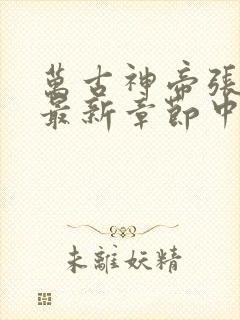 萬古神帝張
最新章節中
未離妖精